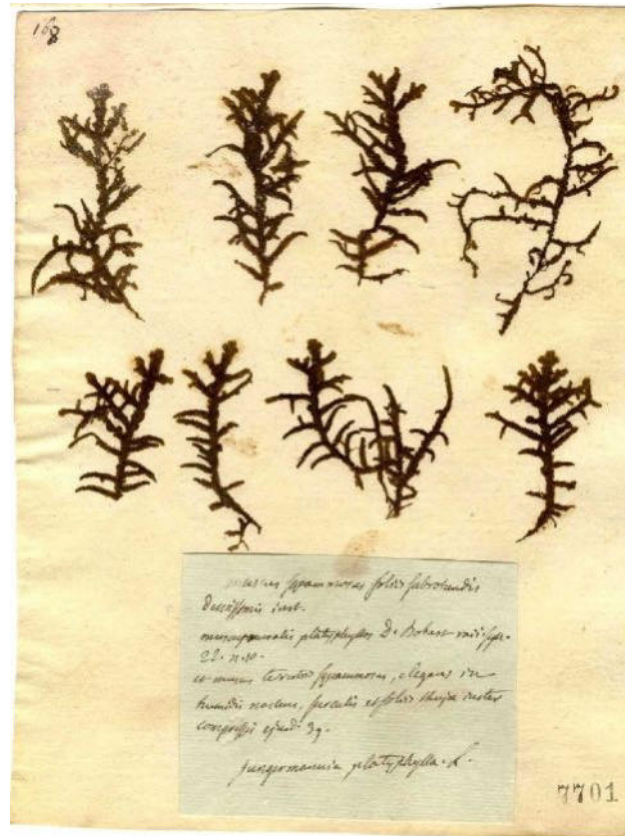 168
muscus squammosus foliis subrotundis
densissimis inst.
platyphyllos D. Bobart raii syn.
22. n. 10.
et muscus terrestris squammosus, elegans in
humidis nascens, surculis et foliis thujæ instar
compressis ejusd. 39.
jungermannia platyphylla. L.
7701